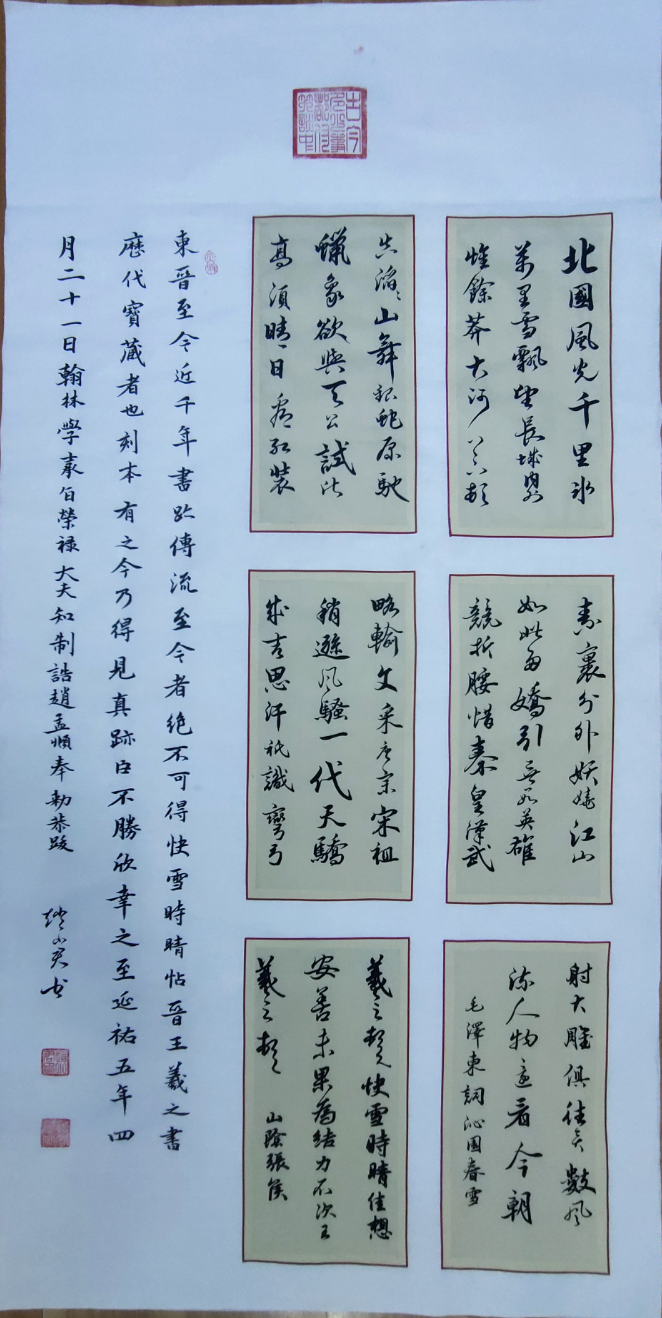 北國風光千里冰
萬里雪飄望長城內外
惟餘莽大河上下頓
失滔〻山舞銀蛇原馳
蠟象欲與天公試比
高須晴日看紅裝
素裹分外妖嬈江山
如此多嬌引無數英雄
競折腰惜秦皇漢武
略輸文采唐宗宋祖
稍遜風騷一代天驕
成吉思汗祇識彎弓
射大雕俱往矣數風
流人物還看今朝
毛澤東詞沁園春雪
羲之頓首快雪時晴佳想
安善未果為結力不次王
羲之頓首 山陰張侯
東晉至今近千年書跡傳流至今者絕不可得快雪時晴帖晉王羲之書
歷代寶藏者也刻本有之今乃得見真跡臣不勝欣幸之至延祐五年四
月二十一日翰林學榮祿大夫知制誥趙孟奉勅恭跋